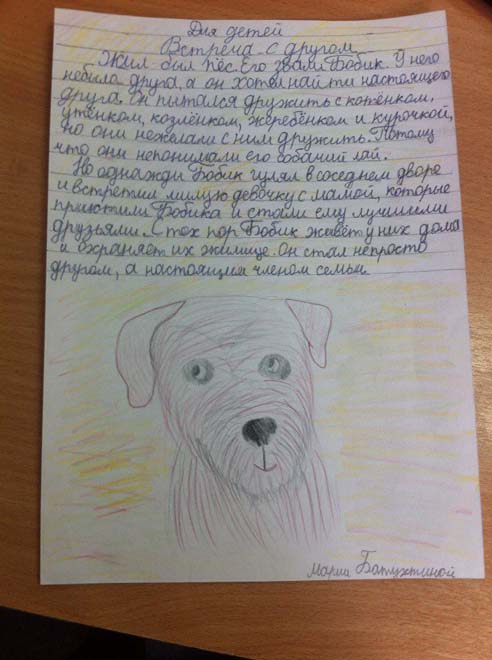 Для детей
Встреча с другом
Жил был пёс. Его звали Бобик. У него
небыло друга, а он хотел найти настоящего
друга. Он пытался дружить с котёнком,
утёнком, козлёнком, жеребёнком и курочкой,
но они нежелали с ним дружить. Потому
что они непонимали его собачий лай.
Но однажды Бобик гулял в соседнем дворе
и встретил милую девочку с мамой, которые
приютили Бобика и стали ему лучшими
друзьями. С тех пор Бобик живёт у них дома
и охраняет их жилище. Он стал непросто
другом, а настоящим членом семьи.
Марии Батухтиной